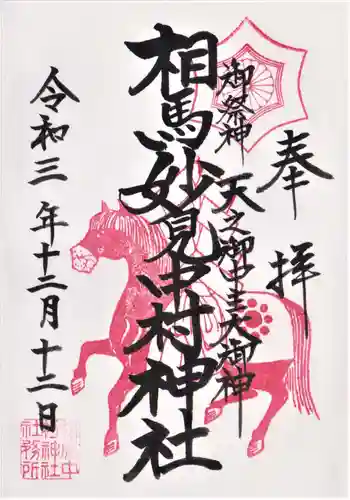 奉拝
御祭神
天之御中主大御神
相馬妙見中村神社
令和三年十二月十二日